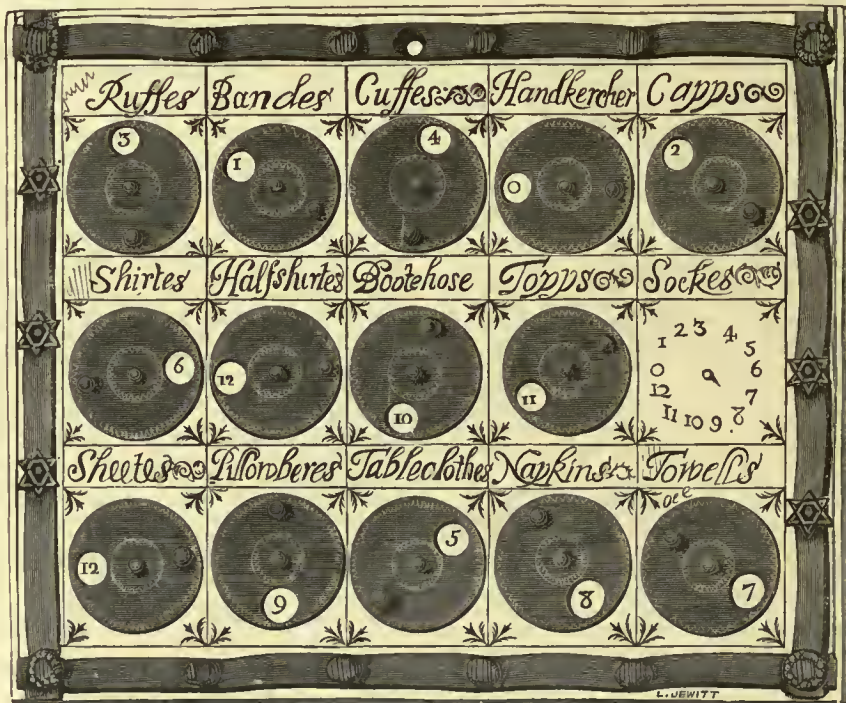 Ruffes Bandes Cuffes Handkercher Capps
3 1 4 0 2
Shirtes Halfshirtes Bootehose Topps Sockes
6 12 10 11
0 1 2 3 4 5 6 7 8 9 10 11 12
Sheetes Pillowberes Tableclothes Napkins Towells
12 9 5 8 7
L. JEWITT